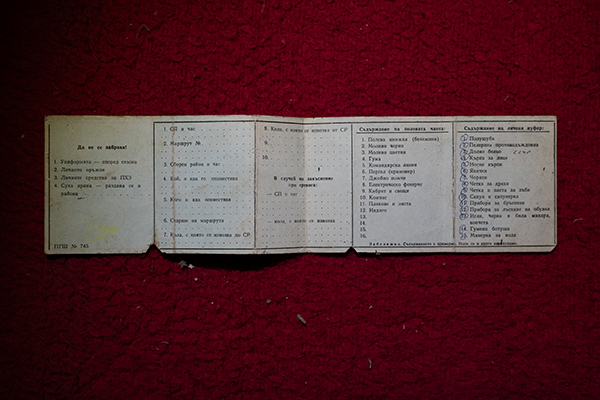 Да не се забравя!
1. Униформата — според сезона
2. Личното оръжие
3. Лични средства за ПХЗ
4. Суха храна — раздава се в
района
ПГШ № 745
1. СП в час
2. Маршрут №
3. Сборен район и час
4. Кой, и кда го оповестява
5. Кого и къде оповестява
6. Старши на маршрута
7. Кола, с която се използва до СР
8. Кола, с която се използва от СР
9.
10.
В случай на закъснение
(по тревога):
— СП в час
— кола, с която се използва
Съдържание на полевата чанта:
1. Полева книжка (бележник)
2. Молива черни
3. Молива цветни
4. Гума
5. Командирска линия
6. Пергел (крамомер)
7. Джобно ножче
8. Електрическо фенерче
9. Кибрит и свещи
10. Компас
11. Пликове и листа
12. Индиго
13.
14.
15.
16.
Съдържание на личния куфар:
1. Полушуба
2. Пелерина противодъждовна
3. Долно бельо
4. Кърпа за лице
5. Носни кърпи
6. Якички
7. Чорапи
8. Четка за дрехи
9. Четка и паста за зъби
10. Сапун и сапунерка
11. Прибори за бръснене
12. Прибори за лъскане на обувки
13. Игли, черна и бяла макара,
копчета
14. Гумени ботуши
15. Манерка за вода
Забележка. Съдържанието е примерно.